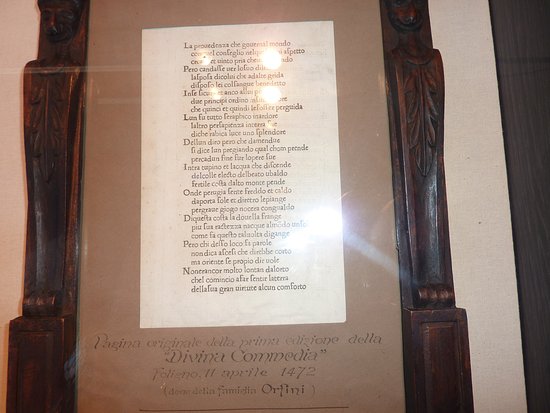 La prouedenza che gouernal mondo
con quel conseglio nel quale ogni aspetto
creato e uinto pria che uada al fondo
Pero candasse uer lo suo diletto
lasposa dicolui che adalte grida
disposo lei col sangue benedetto
Inse sicura et anco allui piu fida
due principi ordino in suo fauore
che quinci et quindi lefosser perguida
Lun fu tutto seraphico inardore
laltro persapienza interra fue
diche rabica luce uno splendore
Dellun diro pero che damendue
si dice lun pregiando qual chom pende
percadun fine fur lopere sue
Intra tupino et lacqua che discende
delcolle electo delbeato ubaldo
fertile costa dalto monte pende
Onde perugia sente freddo et caldo
daporta sole et diretro lepiange
pergraue giogo nocera congualdo
Diquesta costa la douella frange
piu sua rattezza nacque almondo un sole
come fa questo taluolta digange
Pero chi desso loco fa parole
non dica ascesi che direbbe corto
ma oriente se propio dir uole
Nonerancor molto lontan dalorto
chel comincio afar sentir laterra
dellasua gran uirtute alcun comforto
Pagina originale della prima edizione della
"Divina Commedia"
Foligno, 11 aprile 1472
(dono della famiglia Orfini)